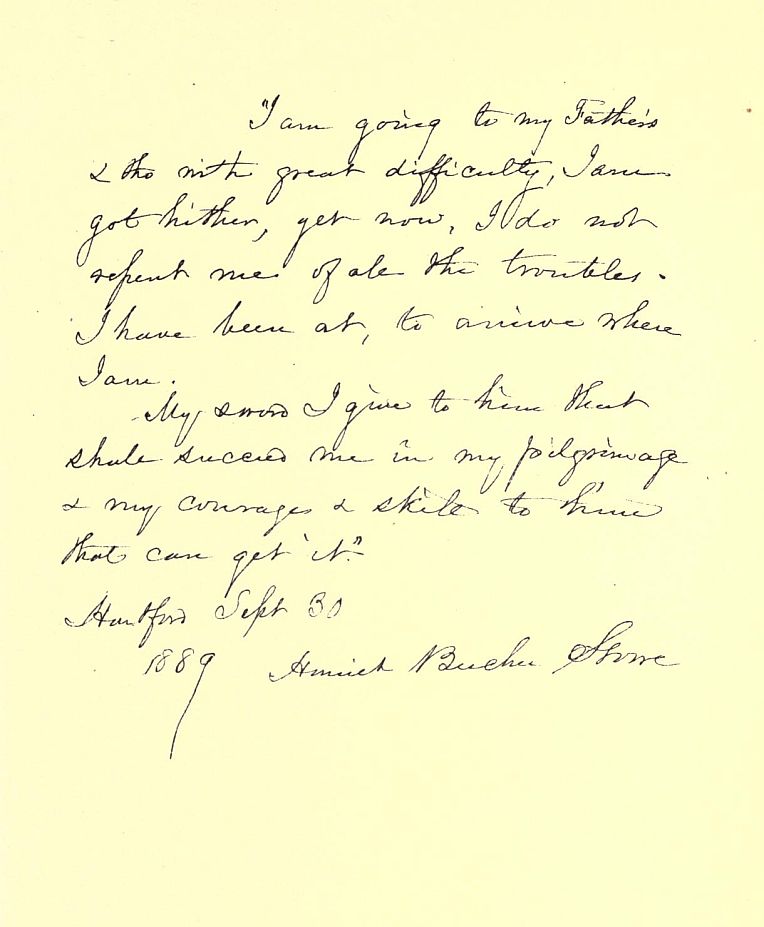 "I am going to my Father's
& tho with great difficulty, I am
got hither, yet now, I do not
repent me of all the troubles.
I have been at, to arrive where
I am.
My sword I give to him that
shall succeed me in my pilgrimage
& my courage & skill to him
that can get it."
Hartford Sept 30
1889 Harriet Beecher Stowe